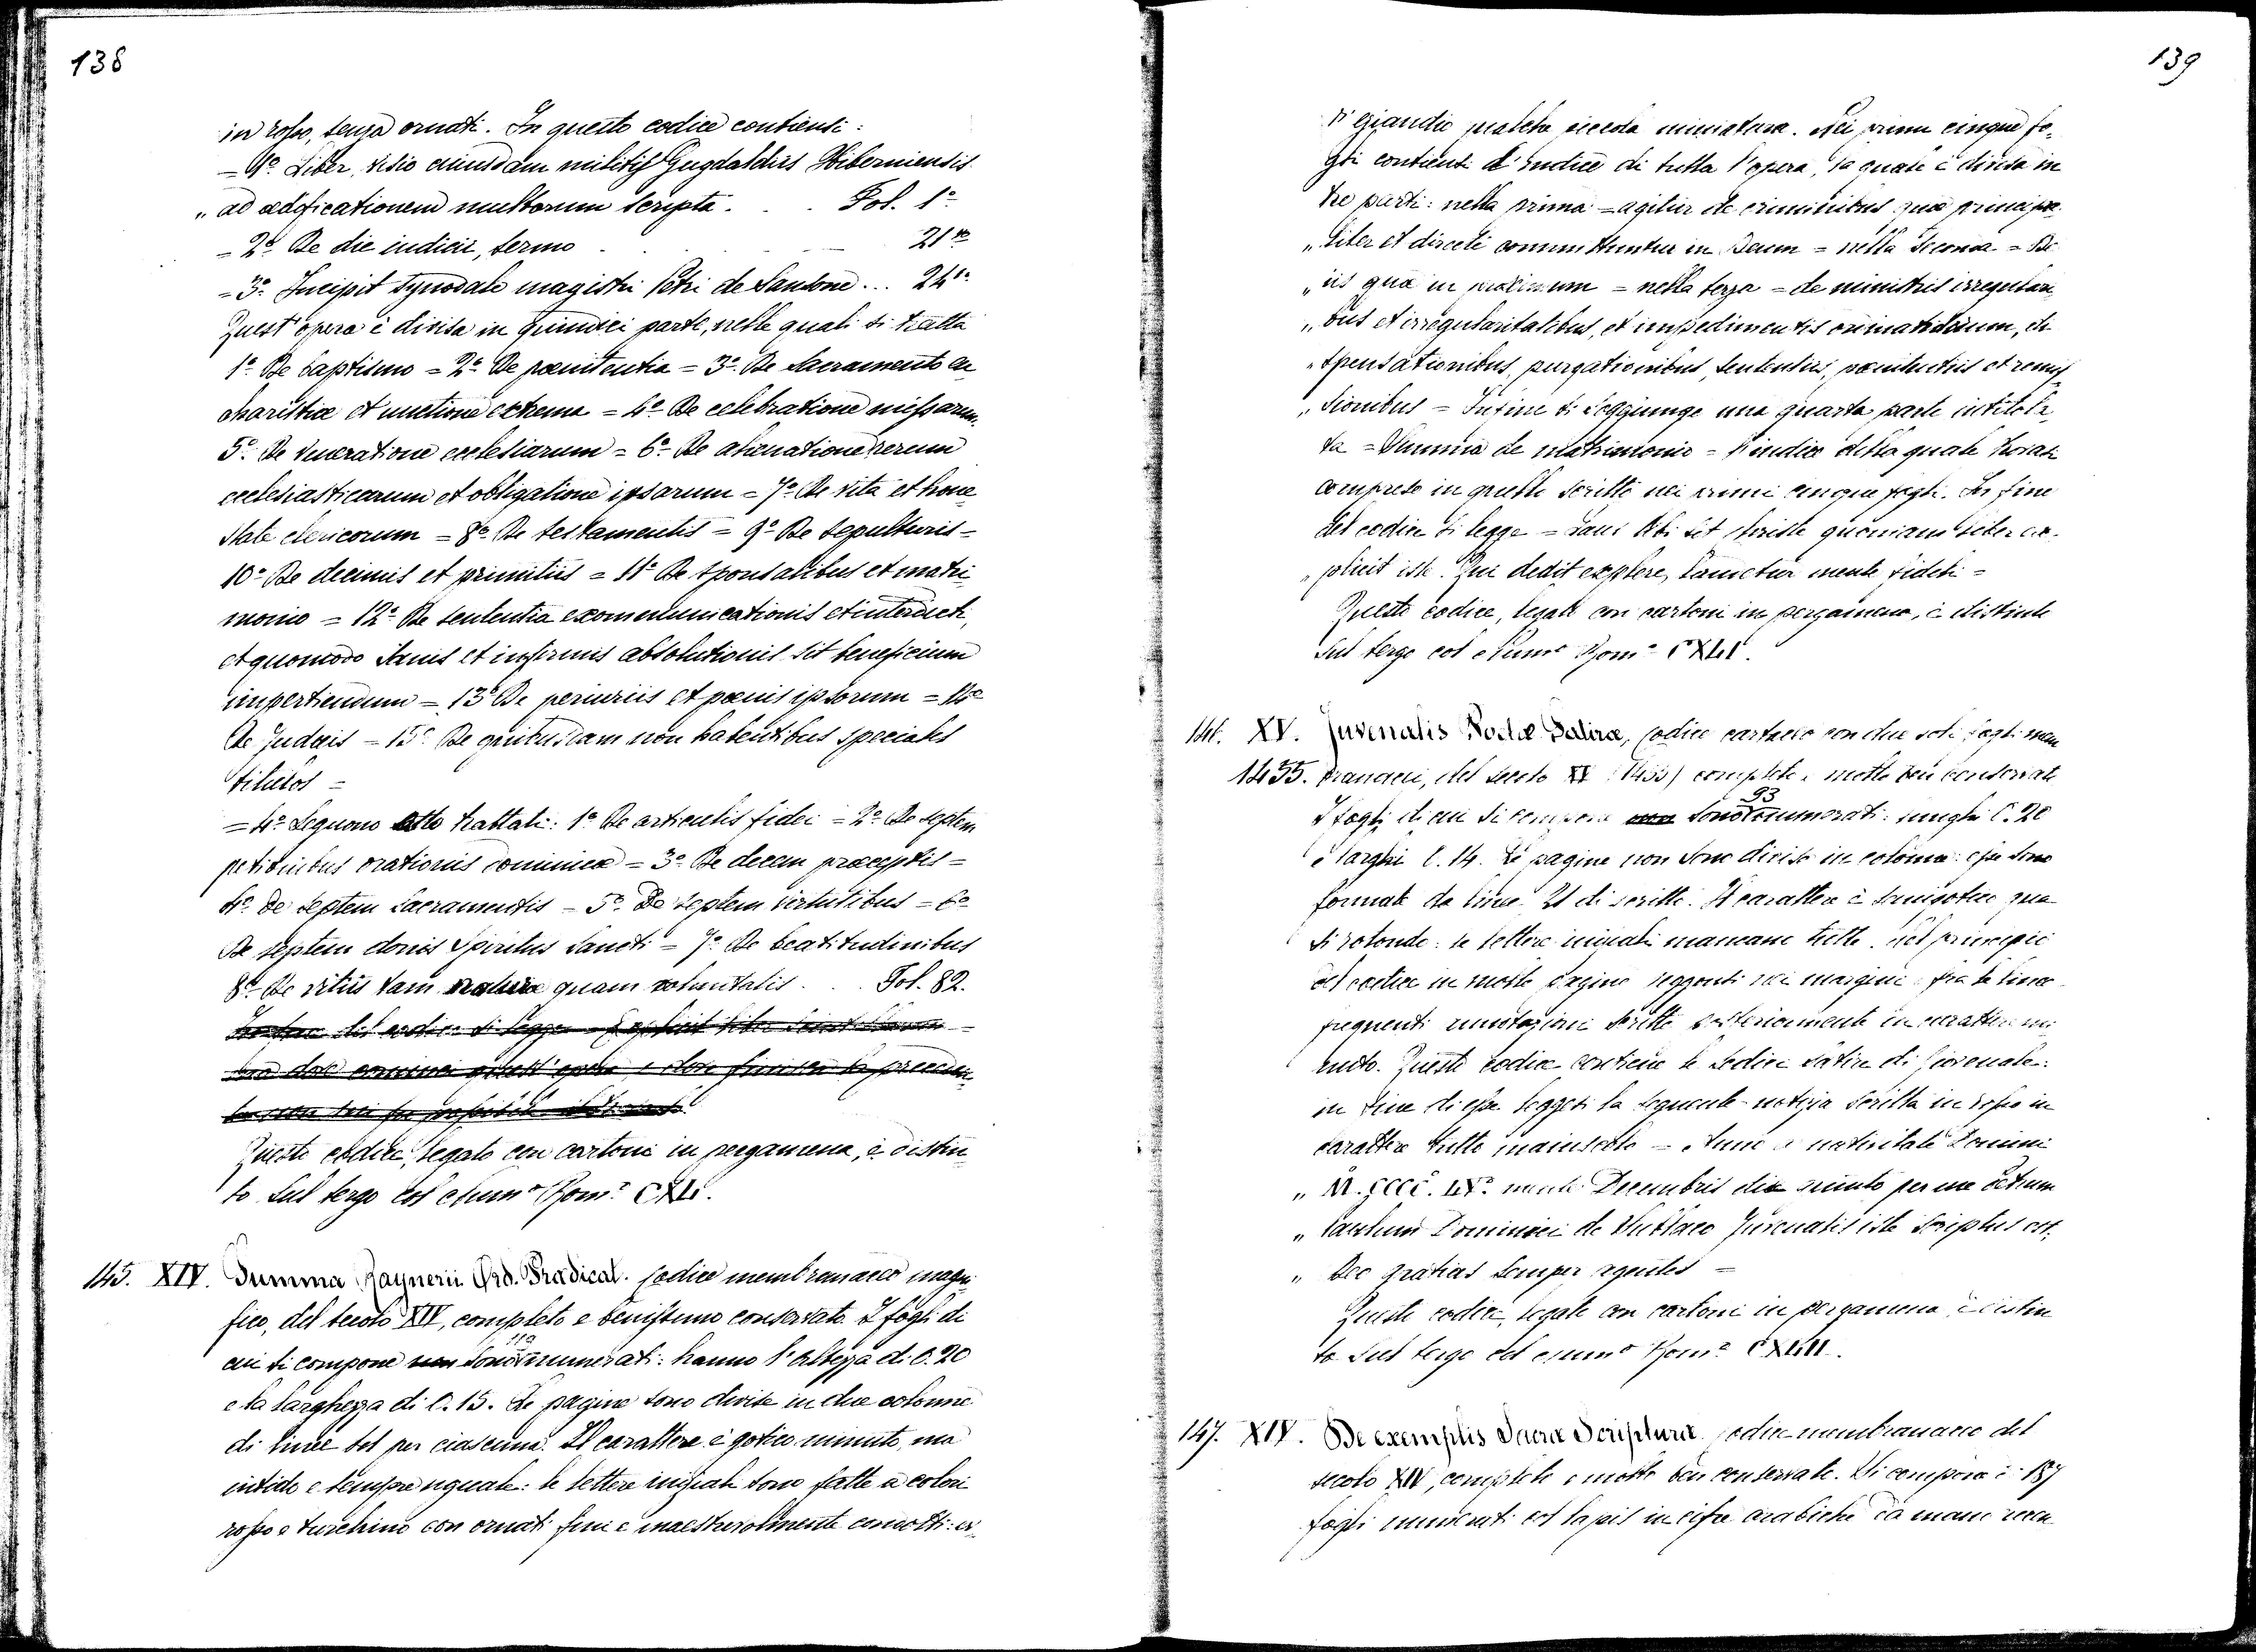 138
in rosso, senza ornati. In questo codice contiensi:
= 1º Liber, visio cuiusdam militis Gugdaldus Hiberniensis
„ ad ædificationem multorum scripta. . . Fol. 1º
= 2º De die iudicii, sermo . . 21 vº
= 3º Incipit synodale magistri Petri de Sansone... 24 vº
Quest'opera è divisa in quindici parte, nelle quali si tratta
1º De baptismo = 2º De pœnitentia = 3º De Sacramento eu
charistiæ et unctione extrema = 4º De celebratione missarum,
5º De veneratione ecclesiarum = 6º De alienatione rerum
ecclesiasticarum et obligatione ipsarum = 7º De vita et hone
state clericorum = 8º De testamentis = 9º De sepulturis =
10º De decimis et primitiis = 11º De sponsalibus et matri
monio = 12º De sententia excomunicationis et interdicti,
et quomodo sanis et infirmis absolutionis sit beneficium
impertiendum = 13º De periuriis et pœnis ipsorum = 14º
De Judæis = 15º De quibusdam non habentibus speciales
titulos =
= 4º Seguono otto trattati: 1º De articulis fidei = 2º De septem
petitionibus orationis dominicæ = 3º De decem præceptis =
4º De septem sacramentis = 5º De septem virtutibus = 6º
De septem donis Spiritus Sancti = 7º De beatitudinibus
8º De vitiis tam naturæ quam voluntatis . . Fol. 82.
del codice si legge = Explicit liber
dove cominci quest'opera e dove finisca la preceden
Questo codice, legato con cartoni in pergamena, è distin
to sul tergo col Numº Romº CXLI.
145. XIV. Summa Raynerii Ord. Prædicat. Codice membranaceo magni
fico, del secolo XIV, completo e benissimo conservato. I fogli di
cui si compone non sono numerati: hanno l'altezza di C. 20
e la larghezza di C. 15. Le pagine sono divise in due colonne
di linee 40 per ciascuna. Il carattere è gotico minuto, ma
nitido e sempre uguale: le lettere iniziali sono fatte a colori
rosso e turchino con ornati fini e maestrevolmente condotti: ev
139
vi eziandio qualche piccola miniatura. Nei primi cinque fo
gli contiensi l'indice di tutta l'opera, la quale è divisa in
tre parti: nella prima = agitur de criminibus quæ principa
„ liter et directe committuntur in Deum = nella seconda = De
„ iis quæ in proximum = nella terza = de ministris irregulari
„ bus et irregularitatibus, et impedimentis ordinandorum, di
„ spensationibus, purgationibus, sententiis, pœnitentiis et remis
„ sionibus = In fine si soggiunge una quarta parte intitola
ta = Summa de matrimonio = l'indice della quale trovasi
compreso in quello scritto nei primi cinque fogli. In fine
del codice si legge = Laus tibi sit Christe quoniam liber ex
„ plicit iste. Qui dedit explere, laudetur mente fideli =
Questo codice, legato con cartoni in pergamena, è distinto
sul tergo col Numº Romº CXLII.
146. XV. Juvenalis Poetæ Satiræ, Codice cartaceo con due soli fogli mem
1455. branacei, del secolo XV (1455) completo e molto ben conservato
I fogli di cui si compone non sono 93 numerati: lunghi C. 20
e larghi C. 14. Le pagine non sono divise in colonne: esse sono
formate da linee 21 di scritto. Il carattere è semigotico qua
si rotondo: le lettere iniziali mancano tutte. Nel principio
del codice in molte pagine leggonsi nei margini e fra le linee
frequenti annotazioni scritte posteriormente in carattere mi
nuto. Questo codice contiene le sedici satire di Giovenale:
in fine di esse leggesi la seguente notizia scritta in rosso in
carattere tutto maiuscolo = Anno a nativitate Domini
„ M. CCCC. LVº mense Decembris die quinto per me Petrum
„ Paulum Dominici de Juvenalis iste scriptus est,
„ Deo gratias semper agentes =
Questo codice, legato con cartoni in pergamena è distin
to sul tergo col Numº Romº CXLIII.
147. XIV. De exemplis Sacræ Scripturæ. Codice membranaceo del
secolo XIV, completo e molto ben conservato. Si compone di 187
fogli numerati col lapis in cifre arabiche da mano recen